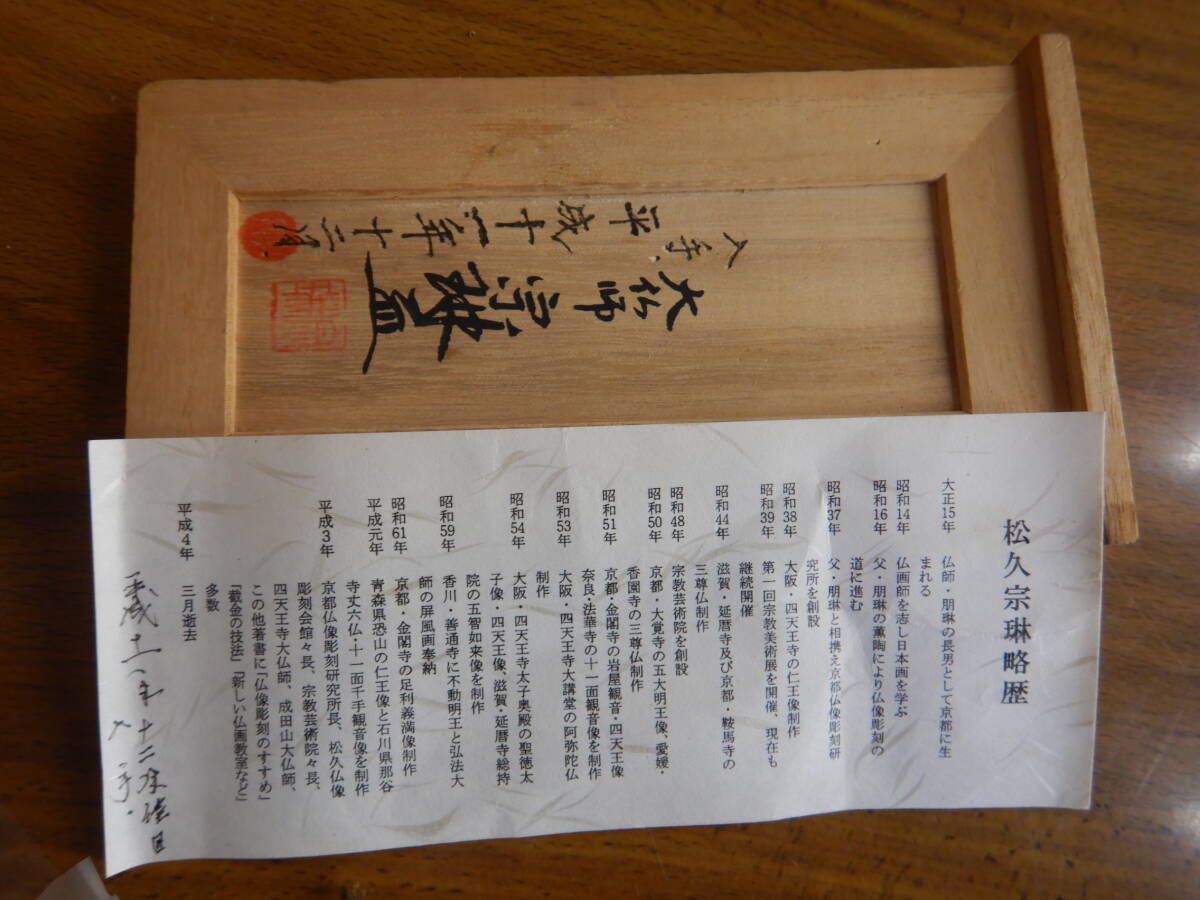 入手
平成十一年十二月
大仏師 宗琳
松久宗琳略歴
大正15年 仏師・朋琳の長男として京都に生
まれる
昭和14年 仏画師を志し日本画を学ぶ
昭和16年 父・朋琳の薫陶により仏像彫刻の
道に進む
昭和37年 父・朋琳と相携え京都仏像彫刻研
究所を創設
昭和38年 大阪・四天王寺の仁王像制作
昭和39年 第一回宗教美術展を開催、現在も
継続開催
昭和44年 滋賀・延暦寺及び京都・鞍馬寺の
三尊仏制作
昭和48年 宗教芸術院を創設
昭和50年 京都・大覚寺の五大明王像、愛媛・
香園寺の三尊仏制作
昭和51年 京都・金閣寺の岩屋観音・四天王像
奈良・法華寺の十一面観音像を制作
昭和53年 大阪・四天王寺大講堂の阿弥陀仏
制作
昭和54年 大阪・四天王寺太子奥殿の聖徳太
子像・四天王像、滋賀・延暦寺総持
院の五智如来像を制作
昭和59年 香川・善通寺に不動明王と弘法大
師の屏風画奉納
昭和61年 京都・金閣寺の足利義満像制作
平成元年 青森県恐山の仁王像と石川県那谷
寺丈六仏・十一面千手観音像を制作
平成3年 京都仏像彫刻研究所長、松久仏像
彫刻会館々長、宗教芸術院々長、
四天王寺大仏師、成田山大仏師、
この他著書に「仏像彫刻のすすめ」
「截金の技法」「新しい仏画教室など」
多数
平成4年 三月逝去
平成十一年十二月
入手